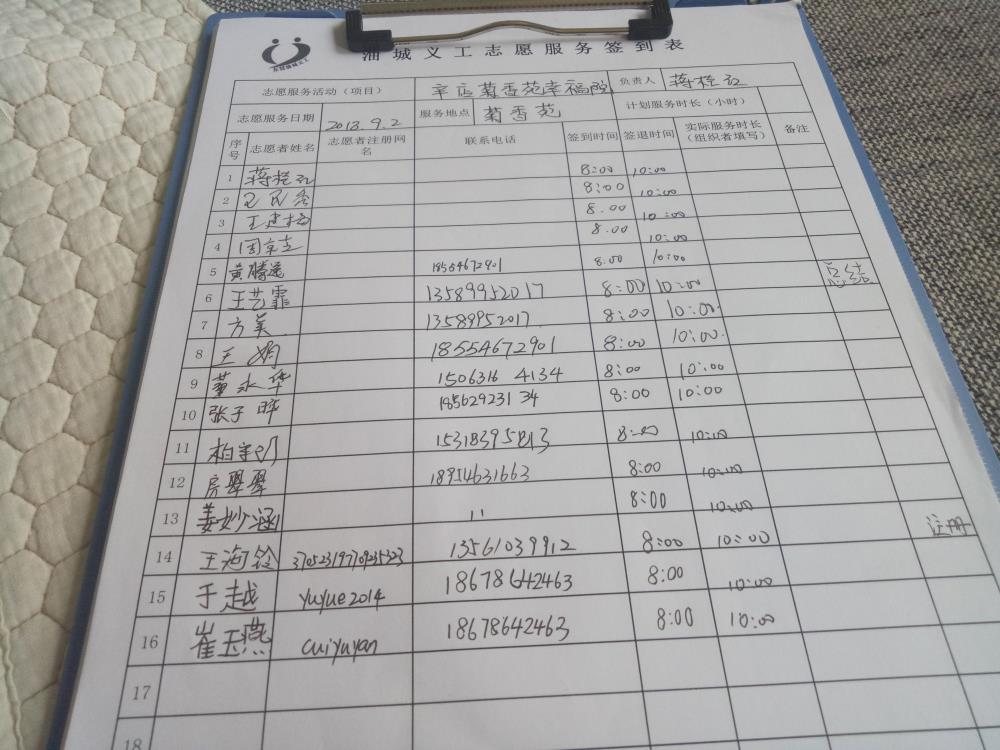 浦城义工志愿服务签到表
志愿服务活动（项目） 辛店菊香苑幸福院 负责人 蒋栓红
志愿服务日期 2018.9.2 服务地点 菊香苑 计划服务时长（小时）
序号 志愿者姓名 志愿者注册网名 联系电话 签到时间 签退时间 实际服务时长（组织者填写） 备注
1 8:00 10:00
2 8:00 10:00
3 8.00 10:00
4 8.00 10:00
5 黄腾 18554672901 8:00 10:00
6 王艺霏 13589952017 8:00 10:00 总结
7 方美 13589952017 8:00 10:00
8 王娟 18554672901 8:00 10:00
9 董永华 1506316 4134 8:00 10:00
10 张子晔 185629231 34 8:00 10:00
11 柏 8:00 10:00
12 房翠翠 18954631663 8:00 10:00
13 姜妙涵 11 8:00 10:00
14 王海铃 13561039912 8:00 10:00 注册
15 于越 yuyue2014 18678642463 8:00 10:00
16 崔玉燕 cuiyuyan 18678642463 8:00 10:00
17
18